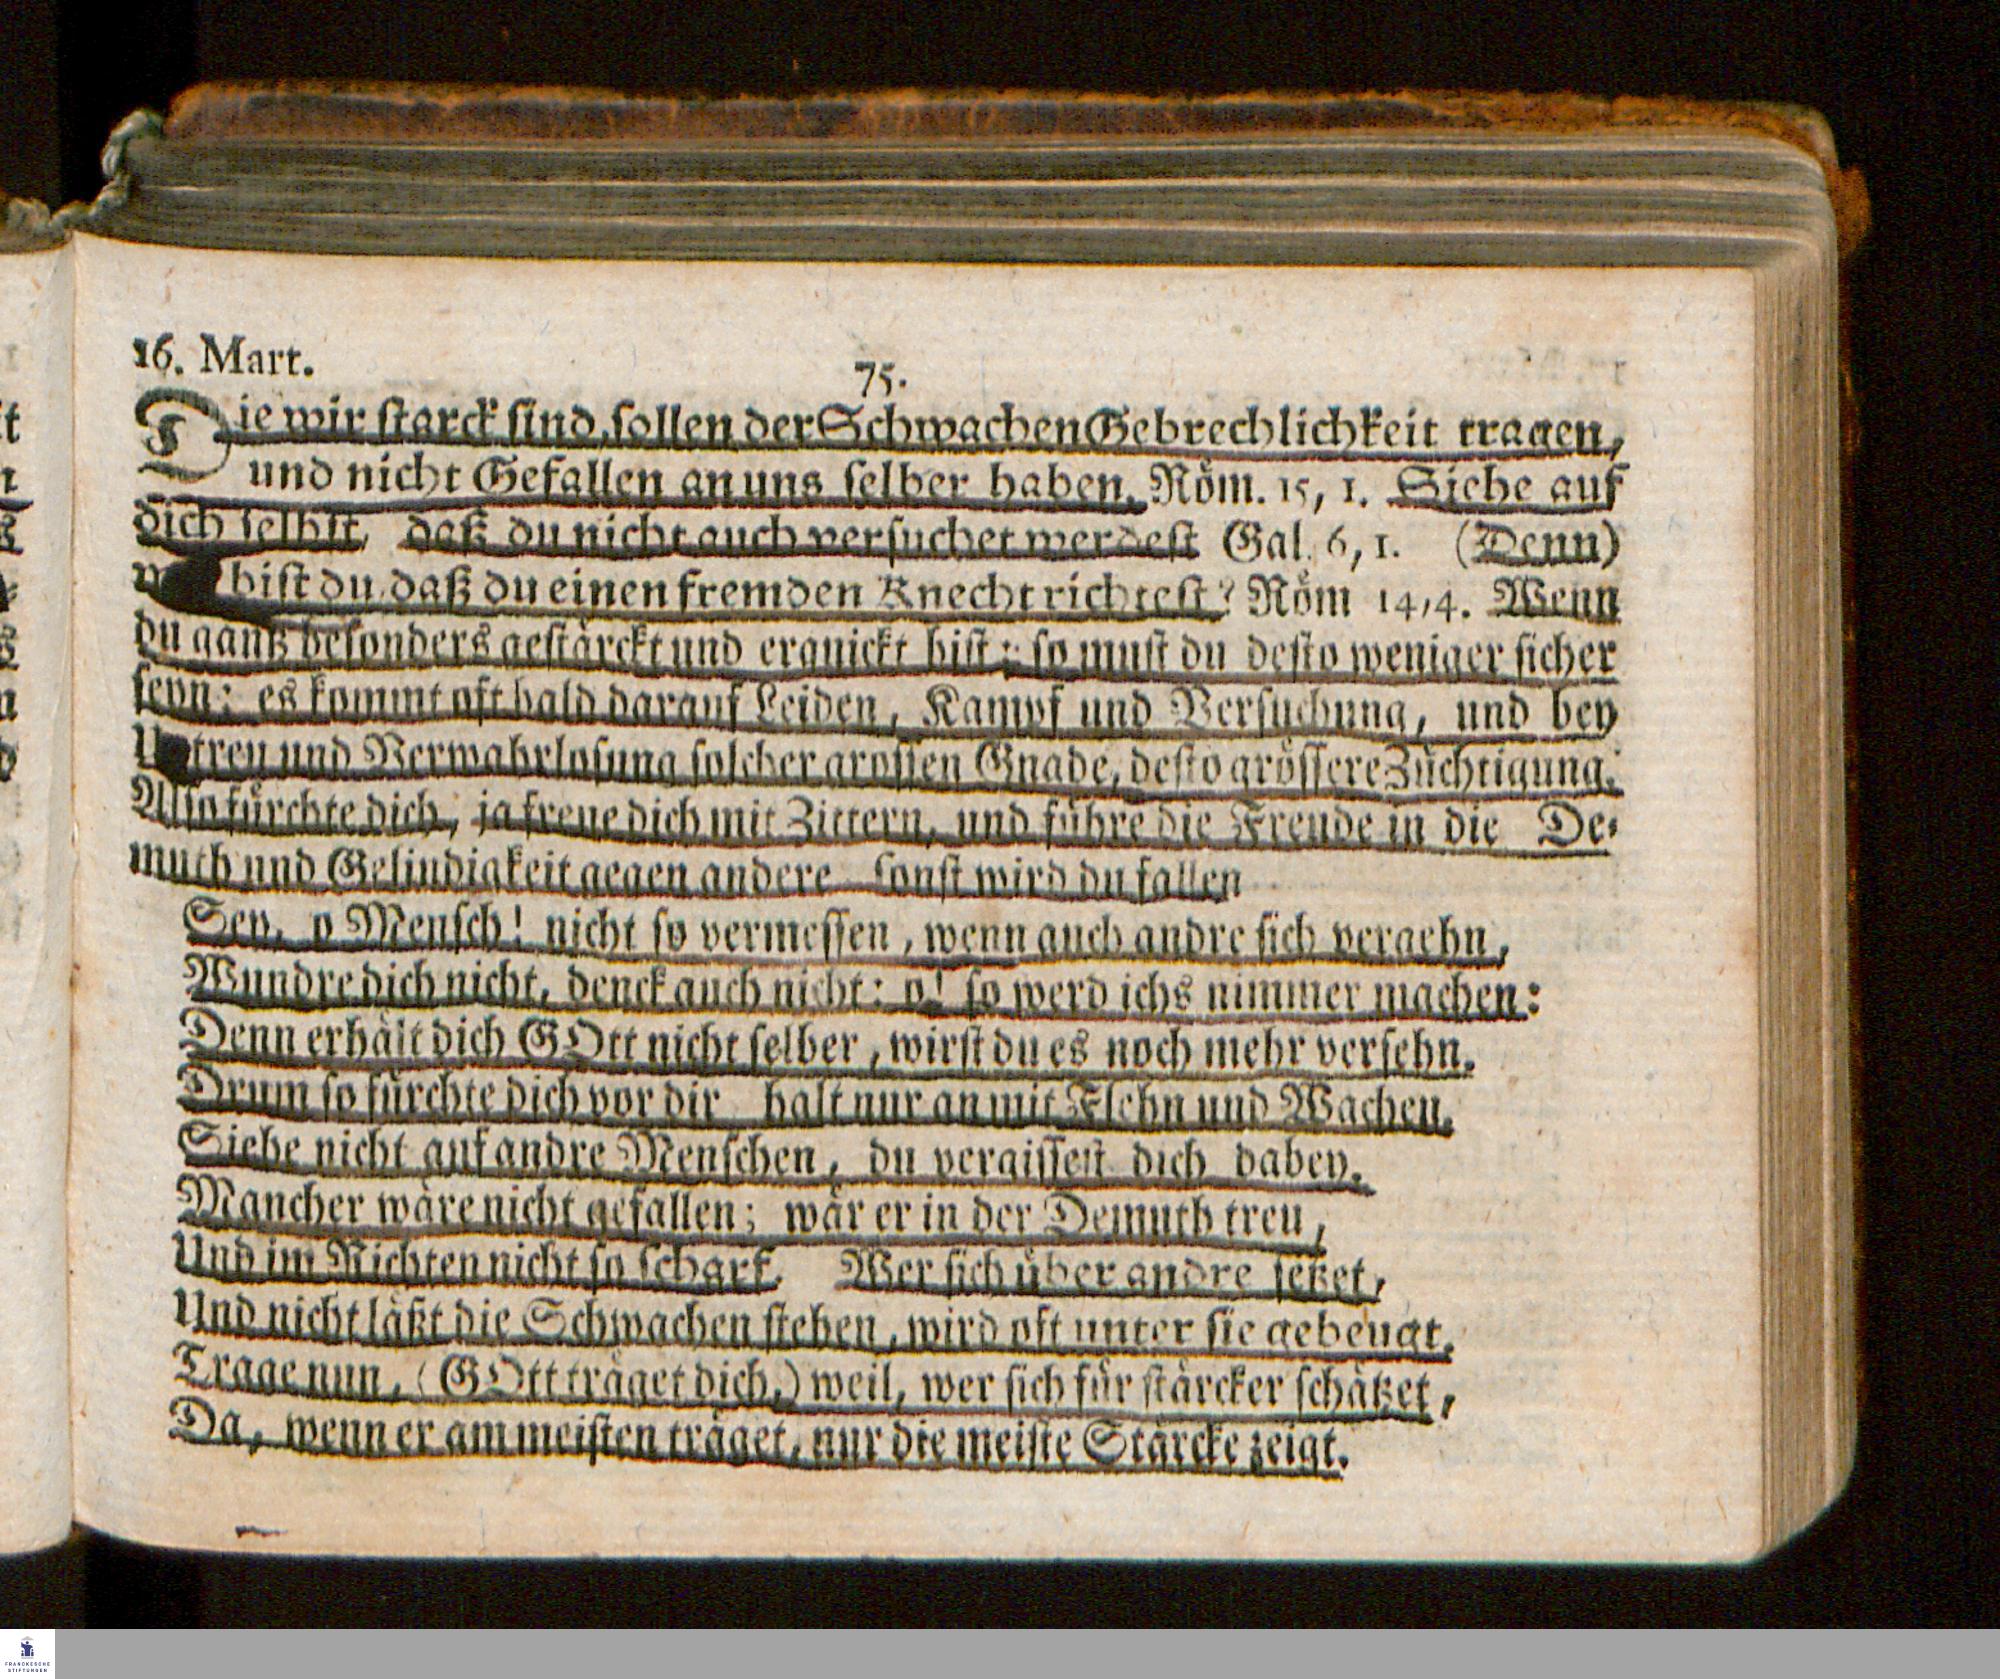 16. Mart.
75.
Die wir starck sind, sollen der Schwachen Gebrechlichkeit tragen,
und nicht Gefallen an uns selber haben. Röm. 15, 1. Siehe auf
dich selbst, daß du nicht auch versuchet werdest Gal. 6, 1. (Denn)
bist du, daß du einen fremden Knecht richtest? Röm 14, 4. Wenn
du gantz besonders gestärckt und erquickt bist; so must du desto weniger sicher
seyn: es kommt oft bald darauf Leiden, Kampf und Versuchung, und bey
Untreu und Verwahrlosung solcher grossen Gnade, desto grössere Züchtigung.
Also fürchte dich, ja freue dich mit Zittern, und führe die Freude in die De-
muth und Gelindigkeit gegen andere sonst wird du fallen
Sey, o Mensch! nicht so vermessen, wenn auch andre sich vergehn,
Wundre dich nicht, denck auch nicht: o! so werd ichs nimmer machen:
Denn erhält dich GOtt nicht selber, wirst du es noch mehr versehn.
Drum so fürchte dich vor dir halt nur an mit Flehn und Wachen.
Siehe nicht auf andre Menschen, du vergissest dich dabey.
Mancher wäre nicht gefallen; wär er in der Demuth treu,
Und im Richten nicht so scharf. Wer sich über andre setzet,
Und nicht läßt die Schwachen stehen, wird oft unter sie gebeugt.
Trage nun, (GOtt träget dich,) weil, wer sich für stärcker schätzet,
Da, wenn er am meisten träget, nur die meiste Stärcke zeigt.
FRANCKESCHE
STIFTUNGEN